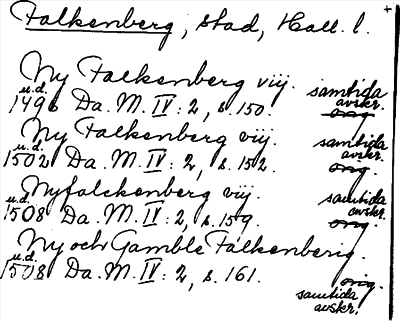 Falkenberg, stad, Hall. l.
Ny Falkenberg viij. samtida
u.d. avskr.
1496 Da. M. IV: 2, s. 150. orig.
Ny Falkenberg viij. samtida
u.d. avskr.
1502 Da. M. IV: 2, s. 152. orig.
Nyfalckenberg viij. samtida
u.d. avskr.
1508 Da. M. IV: 2, s. 159. orig.
Ny och Gamble Falkenberig.
u.d.
1508 Da. M. IV: 2, s. 161. orig.
samtida
avskr.